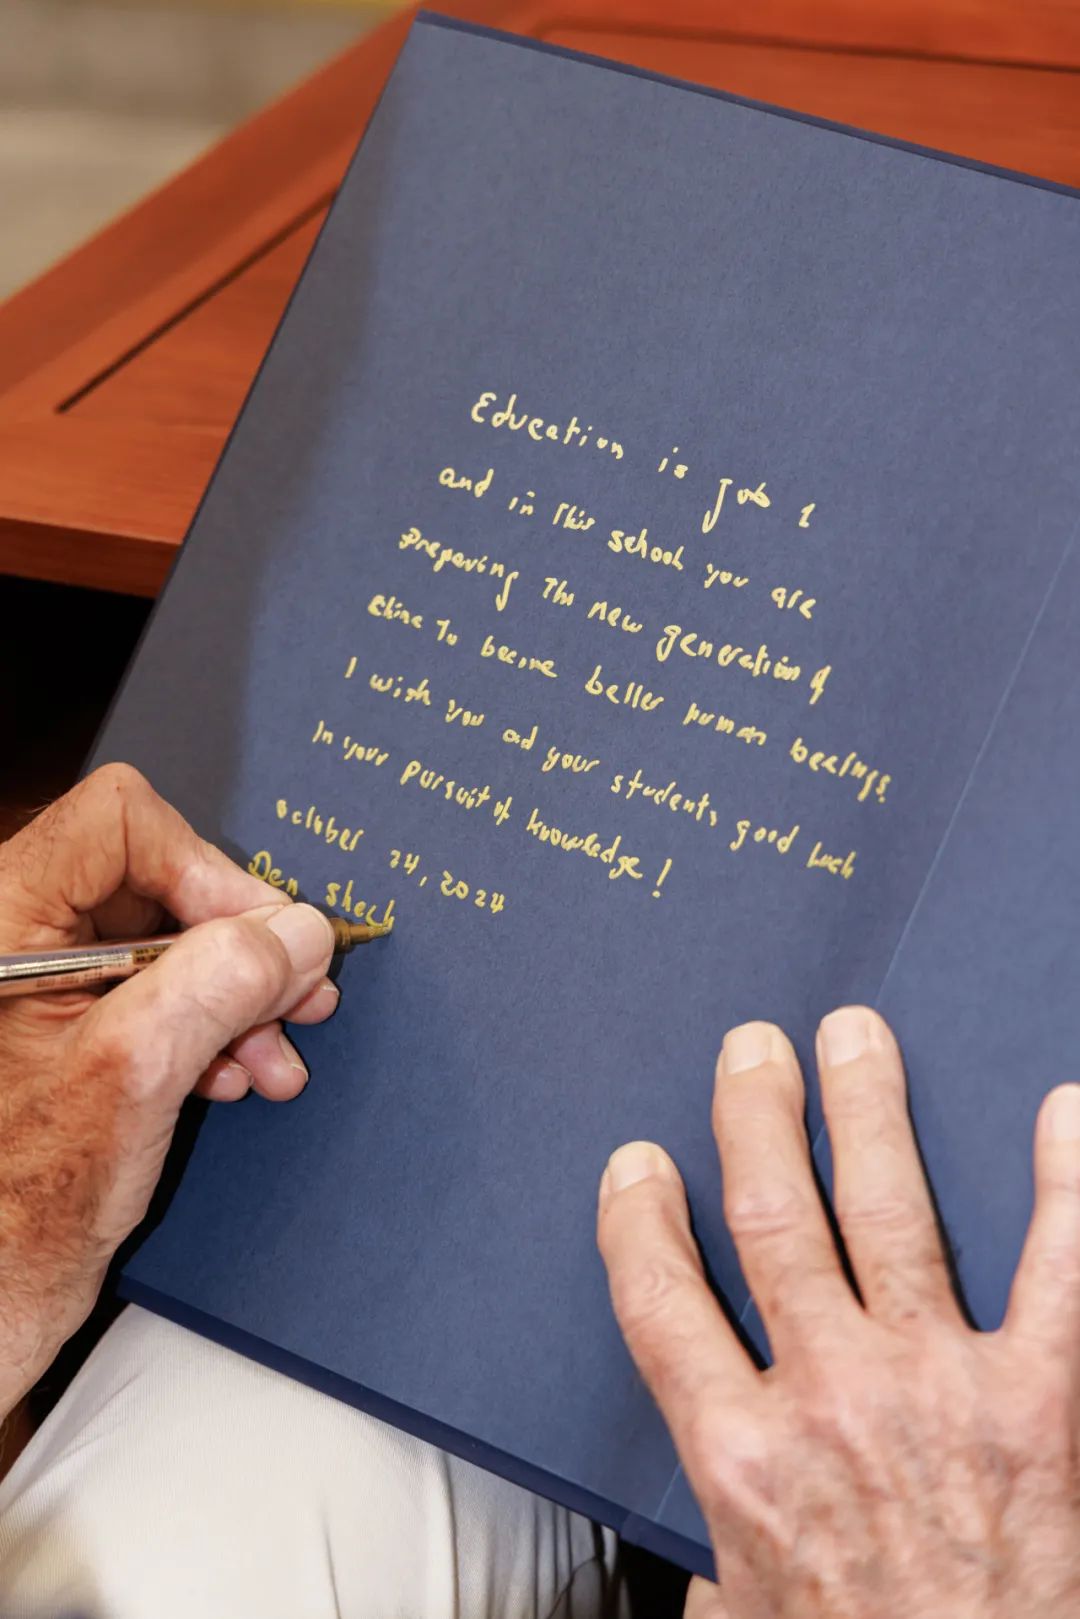 Education is job 1
and in this school you are
Preparing The new generation of
China To become better human beeings.
I wish you and your students good luck
In your pursuit of knowledge!
October 24, 2024
Dan Shech